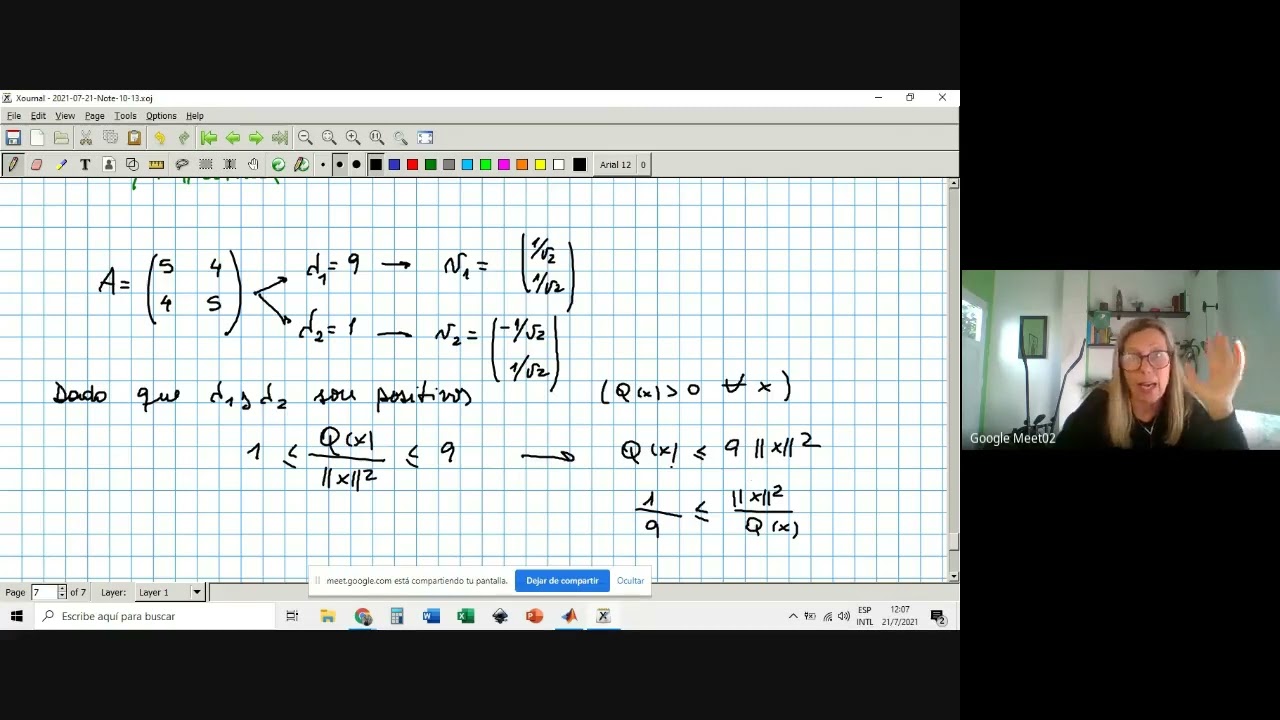 Xournal - 2021-07-21-Note-10-13.xoj
File Edit View Page Tools Options Help
Arial 12 0
A = (5 4
4 5)
d₁ = 9 → v₁ = (1/√2
1/√2)
d₂ = 1 → v₂ = (-1/√2
1/√2)
Dado que d₁ y d₂ son positivos (Q(x) > 0 ∀ x)
1 ≤ Q(x)/||x||² ≤ 9 → Q(x) ≤ 9 ||x||²
1/9 ≤ ||x||²/Q(x)
Google Meet02
meet.google.com está compartiendo tu pantalla. Dejar de compartir Ocultar
Page 7 of 7 Layer: Layer 1
Escribe aquí para buscar
ESP
INTL
12:07
21/7/2021
2